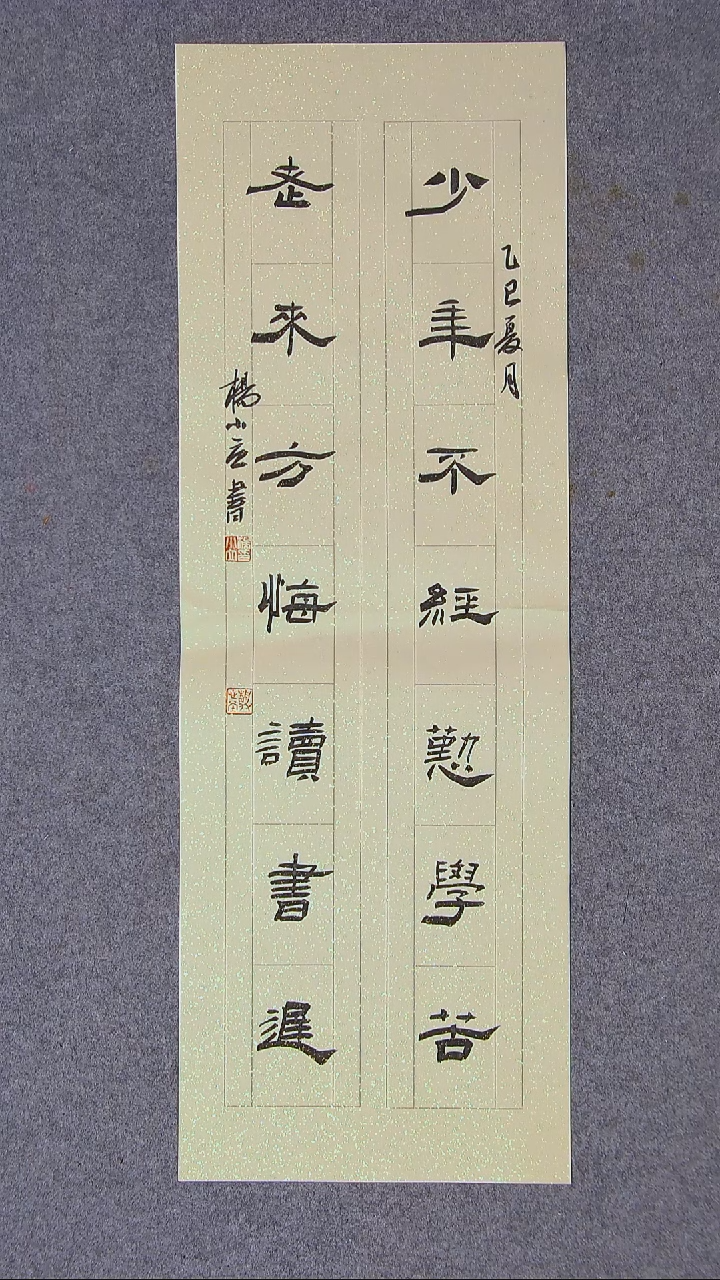 少年不經懃學苦
乙巳夏月
老來方悔讀書遲
楊小
書